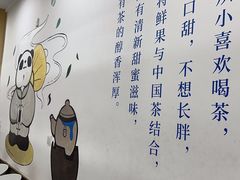 小喜欢喝茶，
口甜，不想长胖，
将鲜果与中国茶结合，
有清新甜蜜滋味，
有茶的醇香浑厚。